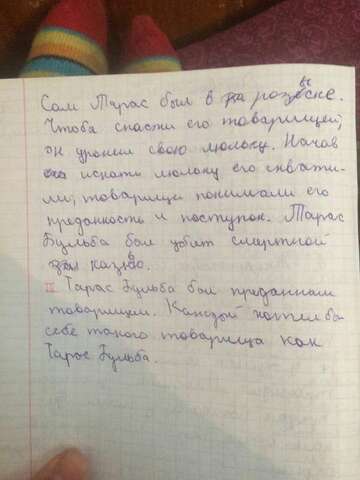 Сам Тарас был в розыске.
Чтобы спасти его товарищей,
он уронил свою люльку. Начав
искать люльку его схвати-
ли, товарищи понимали его
преданность и поступок. Тарас
Бульба был убит смертной
казнью.
II Тарас Бульба был преданным
товарищем. Каждый хотел бы
себе такого товарища как
Тарас Бульба.